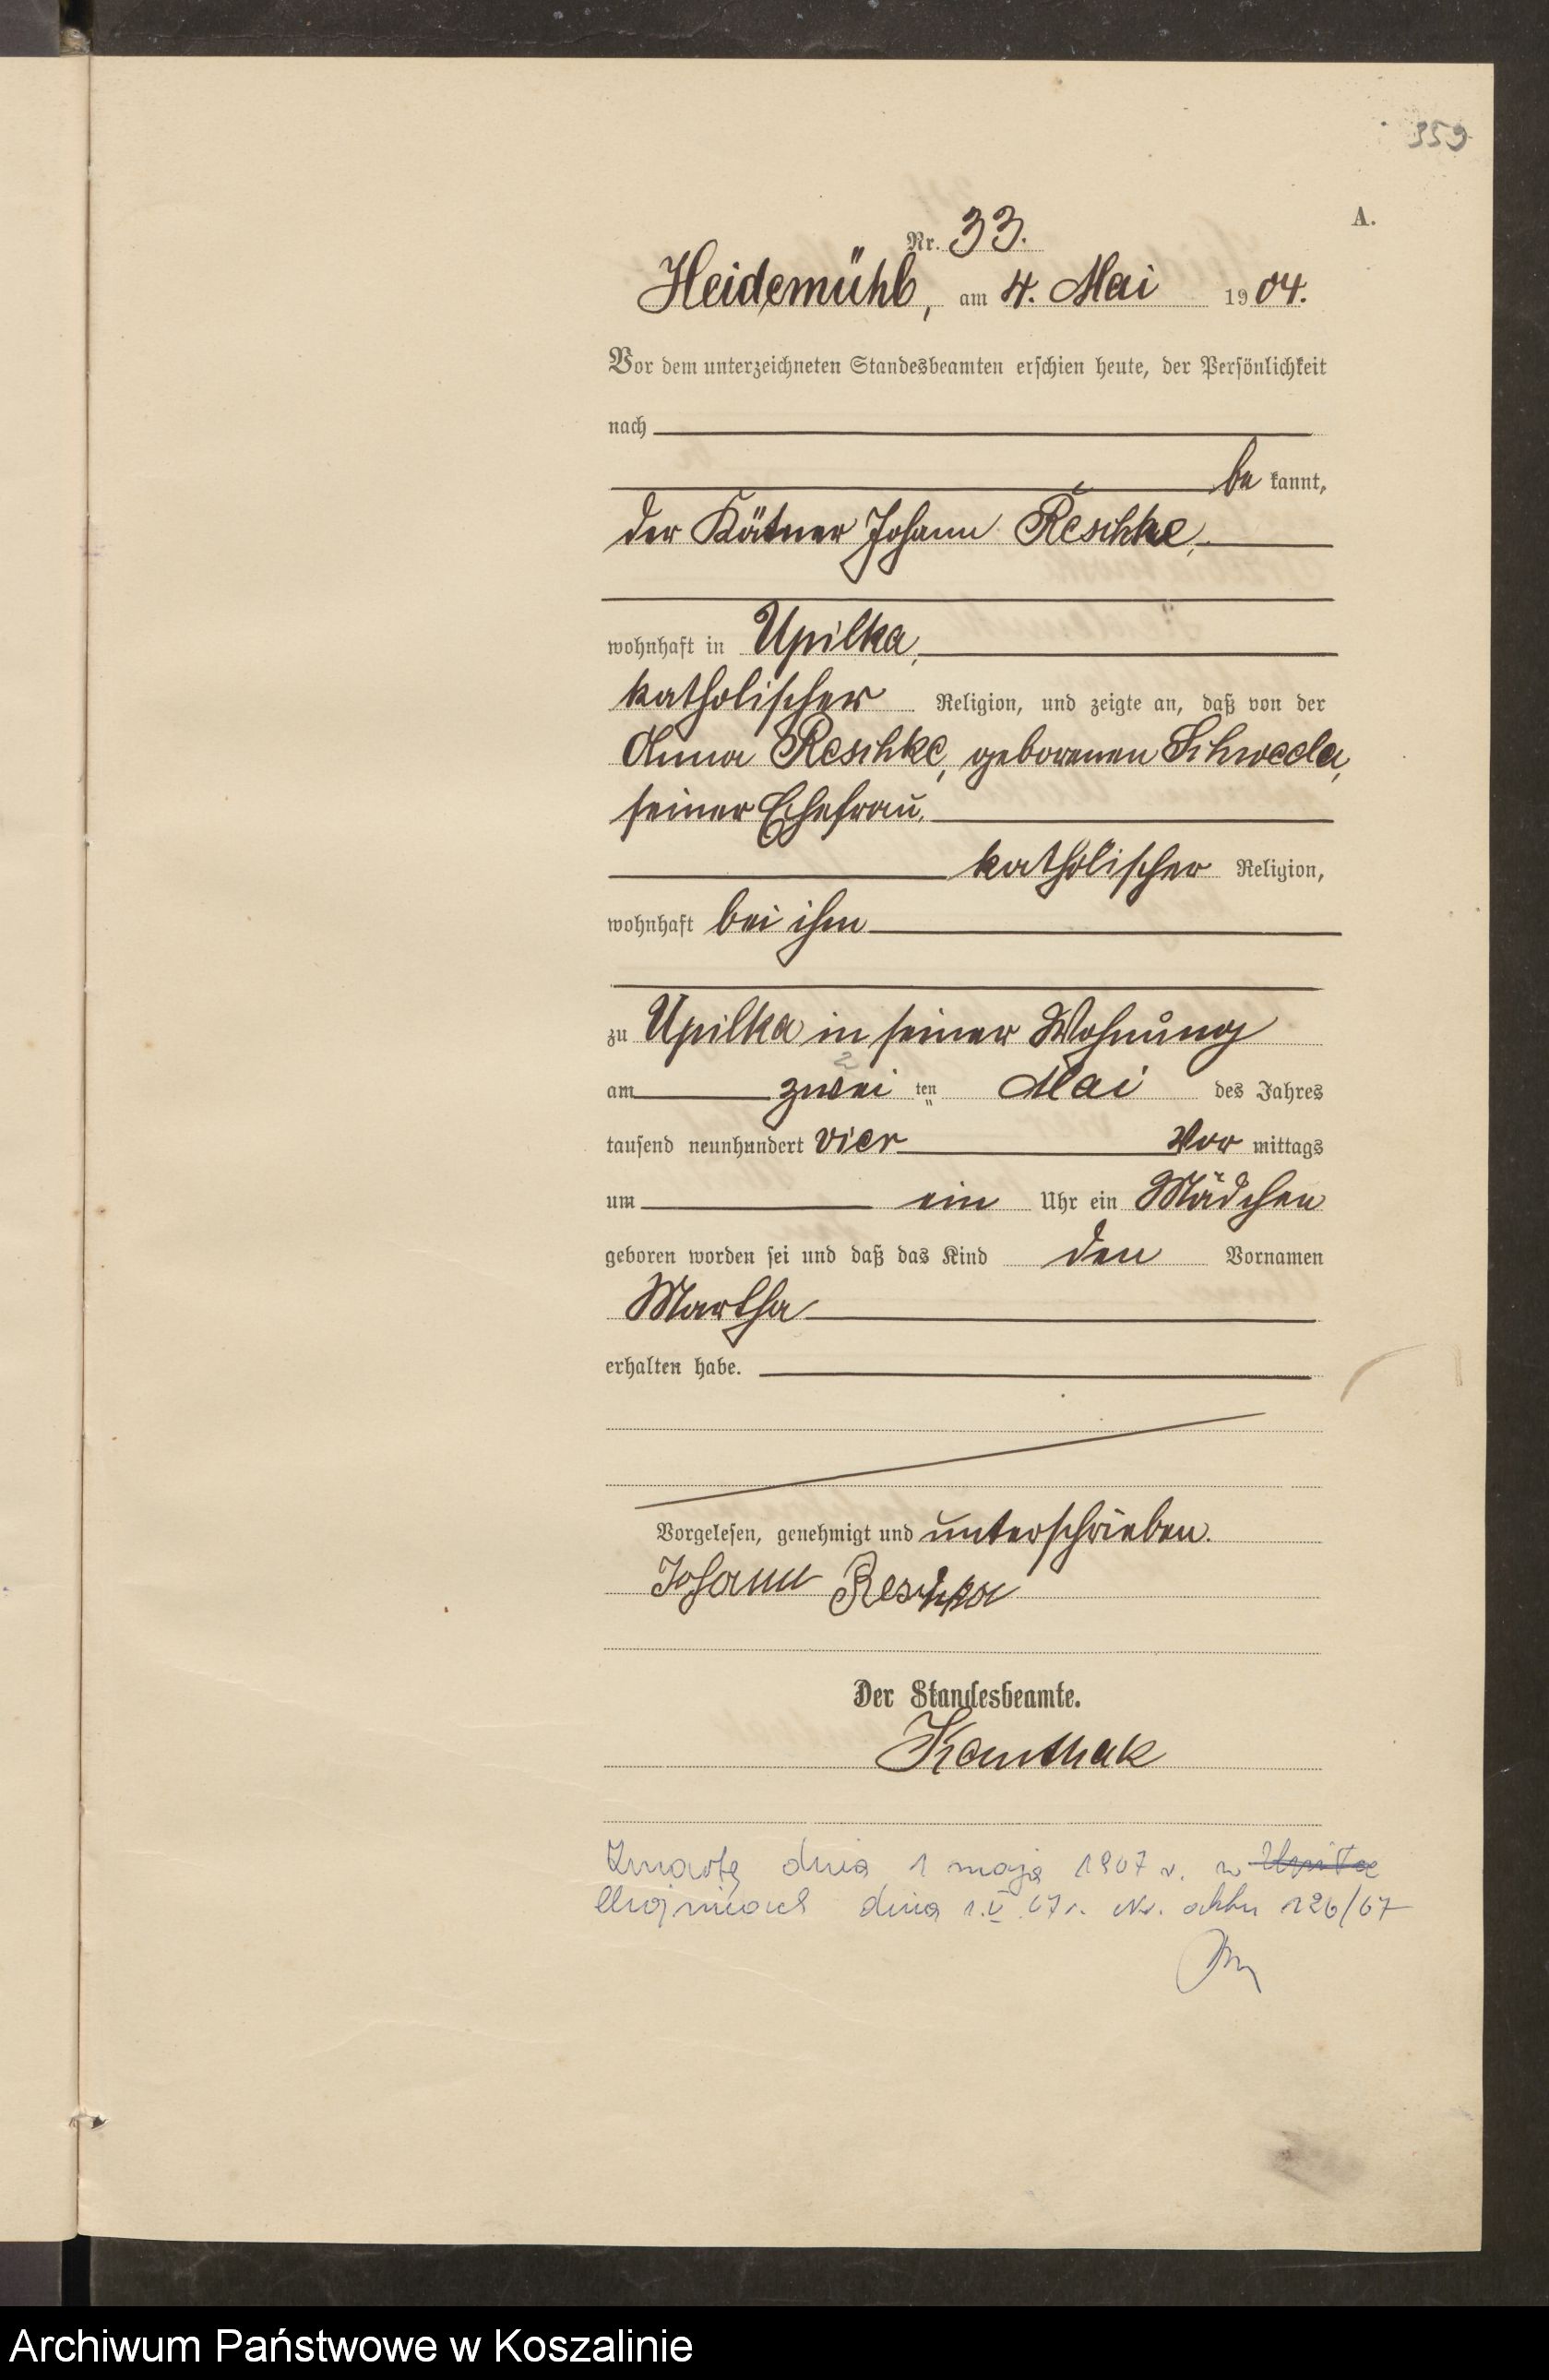 359
A.
Nr. 33.
Heidemühl, am 4. Mai 1904.
Vor dem unterzeichneten Standesbeamten erschien heute, der Persönlichkeit
nach
be kannt,
der Kätner Johann Reschke,
wohnhaft in Upilka,
katholischer Religion, und zeigte an, daß von der
Anna Reschke, geborenen Schweda,
seiner Ehefrau,
katholischer Religion,
wohnhaft bei ihm
zu Upilka in seiner Wohnung
am zwei ten Mai des Jahres
tausend neunhundert vier Vor mittags
um ein Uhr ein Mädchen
geboren worden sei und daß das Kind den Vornamen
Martha
erhalten habe.
Vorgelesen, genehmigt und unterschrieben.
Johann Reschka
Der Standesbeamte.
Kanthak
dnia 1 maja 1967 r. w
Chojnicach dnia 1.V.67r. Nr. aktu 126/67
Archiwum Państwowe w Koszalinie